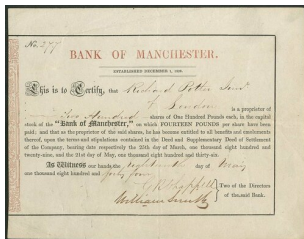 No. 277
BANK OF MANCHESTER.
ESTABLISHED DECEMBER 1, 1828.
This is to Certify, that Richard Potter
of London is a proprietor of
Five Hundred shares of One Hundred Pounds each, in the capital
stock of the "Bank of Manchester," on which FOURTEEN POUNDS per share have been
paid: and that as the proprietor of the said shares, he has become entitled to all benefits and emoluments
thereof, upon the terms and stipulations contained in the Deed and Supplementary Deed of Settlement
of the Company, bearing date respectively the 25th day of March, one thousand eight hundred and
twenty-nine, and the 21st day of May, one thousand eight hundred and thirty-six.
As Witness our hands, the eighteenth day of May
one thousand eight hundred and forty four
Two of the Directors
of the said Bank.
William Smith